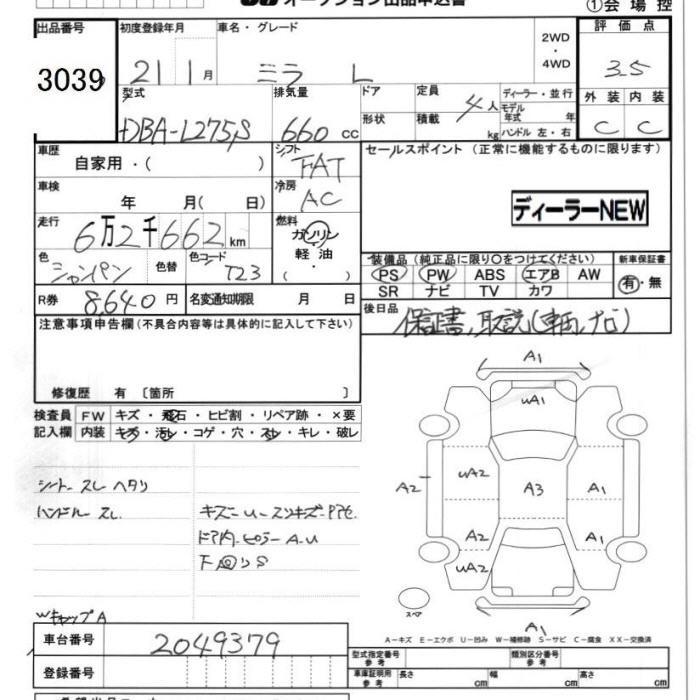 オークション出品申込書
①会場控
出品番号
3039
初度登録年月
21 1月
車名・グレード
ミラ L
2WD
・
4WD
評価点
3.5
外装 内装
C C
型式
DBA-L275S
排気量
660 cc
ドア
形状
定員
積載
4人
kg
ディーラー・並行
モデル年式 年
ハンドル 左・右
車歴
自家用・( )
シフト
FAT
車検
年 月( 日)
冷房
AC
走行
6万2千662km
燃料
ガソリン
軽油
( ・ )
色
シャンパン
色替
色コード
T23
R券
8,640円
名変通知期限 月 日
セールスポイント (正常に機能するものに限ります)
ディーラーNEW
装備品(純正品に限り○をつけてください)
新車保証書
PS PW ABS エアB AW
SR ナビ TV カワ
有・無
後日品
保証書、取説(車両、ナビ)
注意事項申告欄(不具合内容等は具体的に記入して下さい)
修復歴 有〔箇所 〕
検査員
記入欄
FW キズ・飛石・ヒビ割・リペア跡・×要
内装 キズ・汚レ・コゲ・穴・スレ・キレ・破レ
シート スレ ヘタリ
ハンドル スレ
キズー U-スリキズ
ドア内・ピラー A.U
下回リS
Wキャップ A
A1
uA1
uA2
A2
A3
A1
A2
A1
uA2
スペア
A1
A-キズ E-エクボ U-凹み W-補修跡 S-サビ C-腐食 XX-交換済
車台番号
2049379
登録番号
型式指定番号
参考
類別区分番号
参考
車庫証明用
参考
長さ cm
幅 cm
高さ cm